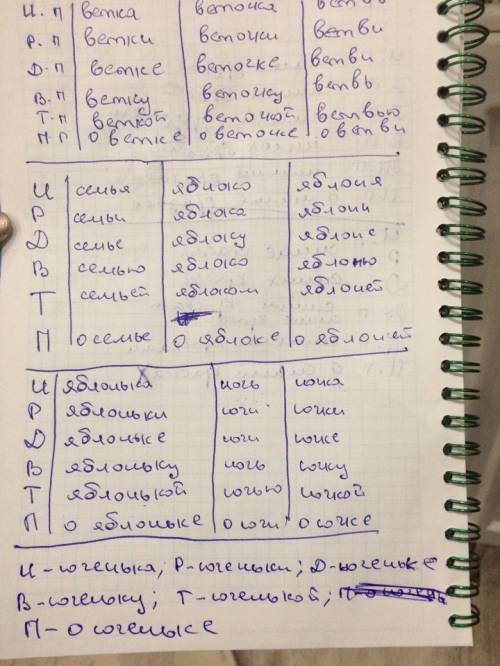 И.П ветка веточка ветвь
Р.П ветки веточки ветви
Д.П ветке веточке ветви
В.П ветку веточку ветвь
Т.П веткой веточкой ветвью
П.П о ветке о веточке о ветви
И семья яблоко яблоня
Р семьи яблока яблони
Д семье яблоку яблоне
В семью яблоко яблоню
Т семьёй яблоком яблоней
П о семье о яблоке о яблоней
И яблонька ночь ночка
Р яблоньки ночи ночки
Д яблоньке ночи ночке
В яблоньку ночь ночку
Т яблонькой ночью ночкой
П о яблоньке о ночи о ночке
И - ноченька; Р - ноченьки; Д - ноченьке
В - ноченьку; Т - ноченькой;
П - о ноченьке